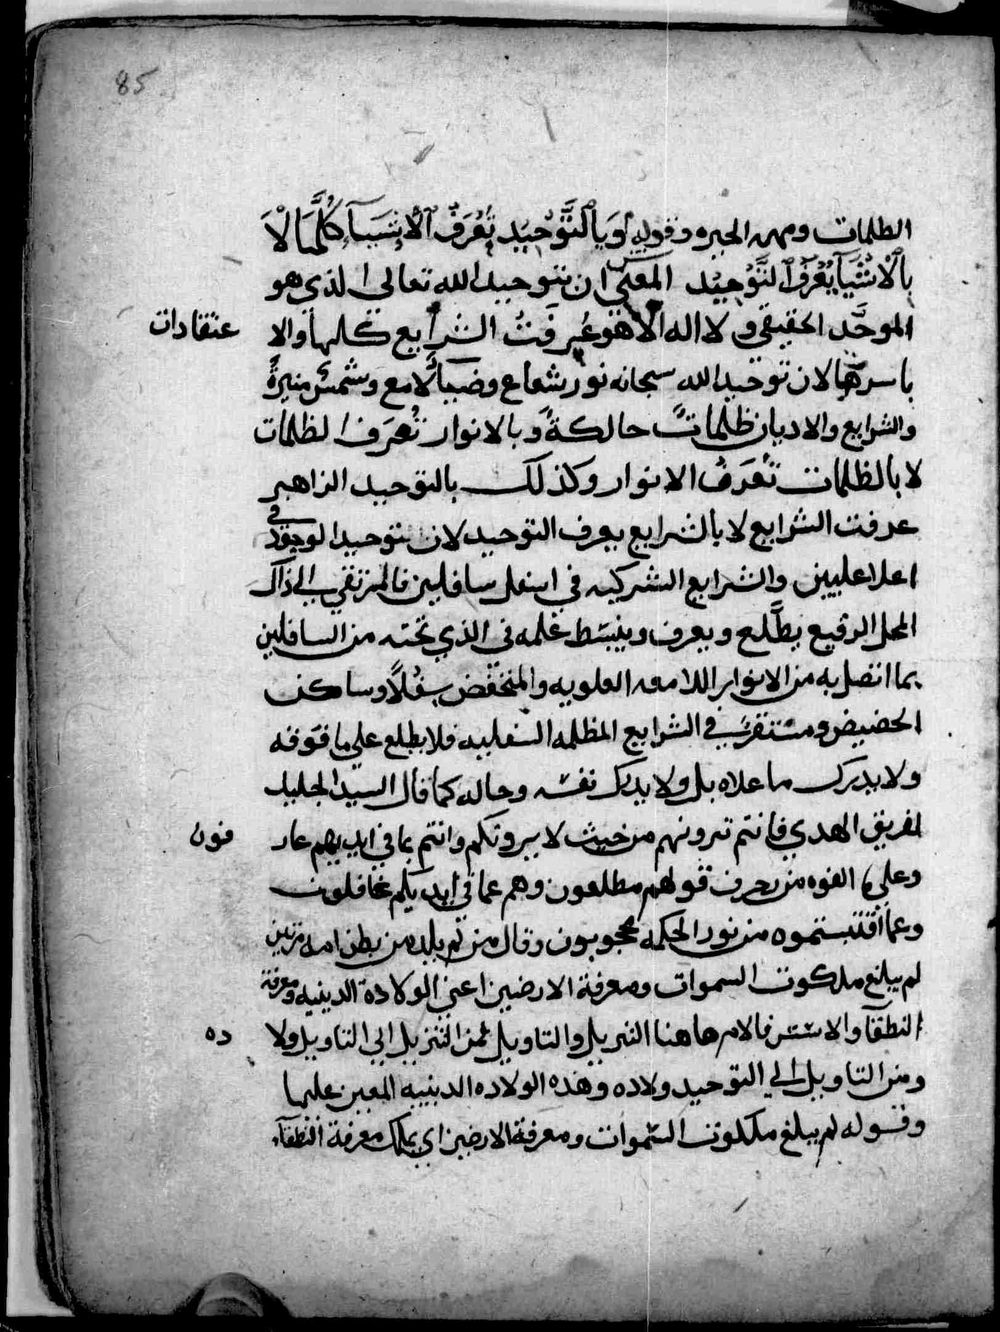 85
الظلمات ومهن الحيره وقوله وَبِالتَّوْحِيْدِ تُعْرَفُ الْاَشْيَآ كُلُّهَا لَا
بِالْاَشْيَآ يُعْرَفُ التَّوْحِيْد المعنى ان بتوحيد الله تعالى الذي هو
الموحَّد الحقيقي ولا اله الا هو عُرِفَتْ الشرايع كلها والا عتقادات
باسرها لان توحيد الله سبحانه نور شعاع وضيآ لامع وشمسٌ منيرةٌ
والشرايع والاديان ظلماتٌ حالكةٌ وبالانوار تُعرَف الظلمات
لا بالظلمات تُعْرَفُ الانوار وكذلك بالتوحيد الزاهر
عرفت الشرايع لا بالشرايع يعرف التوحيد لان توحيد الوجود في
اعلا عليين والشرايع الشركيه في اسفل سافلين فالمرتقي الى ذاك
المحل الرفيع يطَّلع ويعرف وينبسَط علمه في الذي تحته من السافلين
بما اتصل به من الانوار اللامعه العلويه والمنخفض سِفْلًا وساكن
الحضيض ومستقرٌ في الشرايع المظلمه السفليه فلا يطلع على ما فوقه
ولا يدرك ما علاه بل ولا يدرك نفسَه وحاله كما قال السيد الجليل
لفريق الهدي فانتم ترونهم من حيث لا يرونكم وانتم بما في ايديهم عارفون
وعلى الفوه من زخرف قولهم مطلعون وهم عما في ايديكم غافلون
وعما اقتبستموه من نور الحكمه محجوبون وقال من لم يلد من بطن امه مرتين
لم يبلغ ملكوت السموات ومعرفة الارضين اعني الولادة الدينيه ومعرفة
النطقآ والاسس فالام هاهنا التنزيل والتاويل فمن التنزيل الى التاويل ولاده
ومن التاويل الي التوحيد ولاده وهذه الولاده الدينيه المعين عليها
وقوله لم يبلغ ملكوت السموات ومعرفة الارضين اي يملك معرفة النطقآء